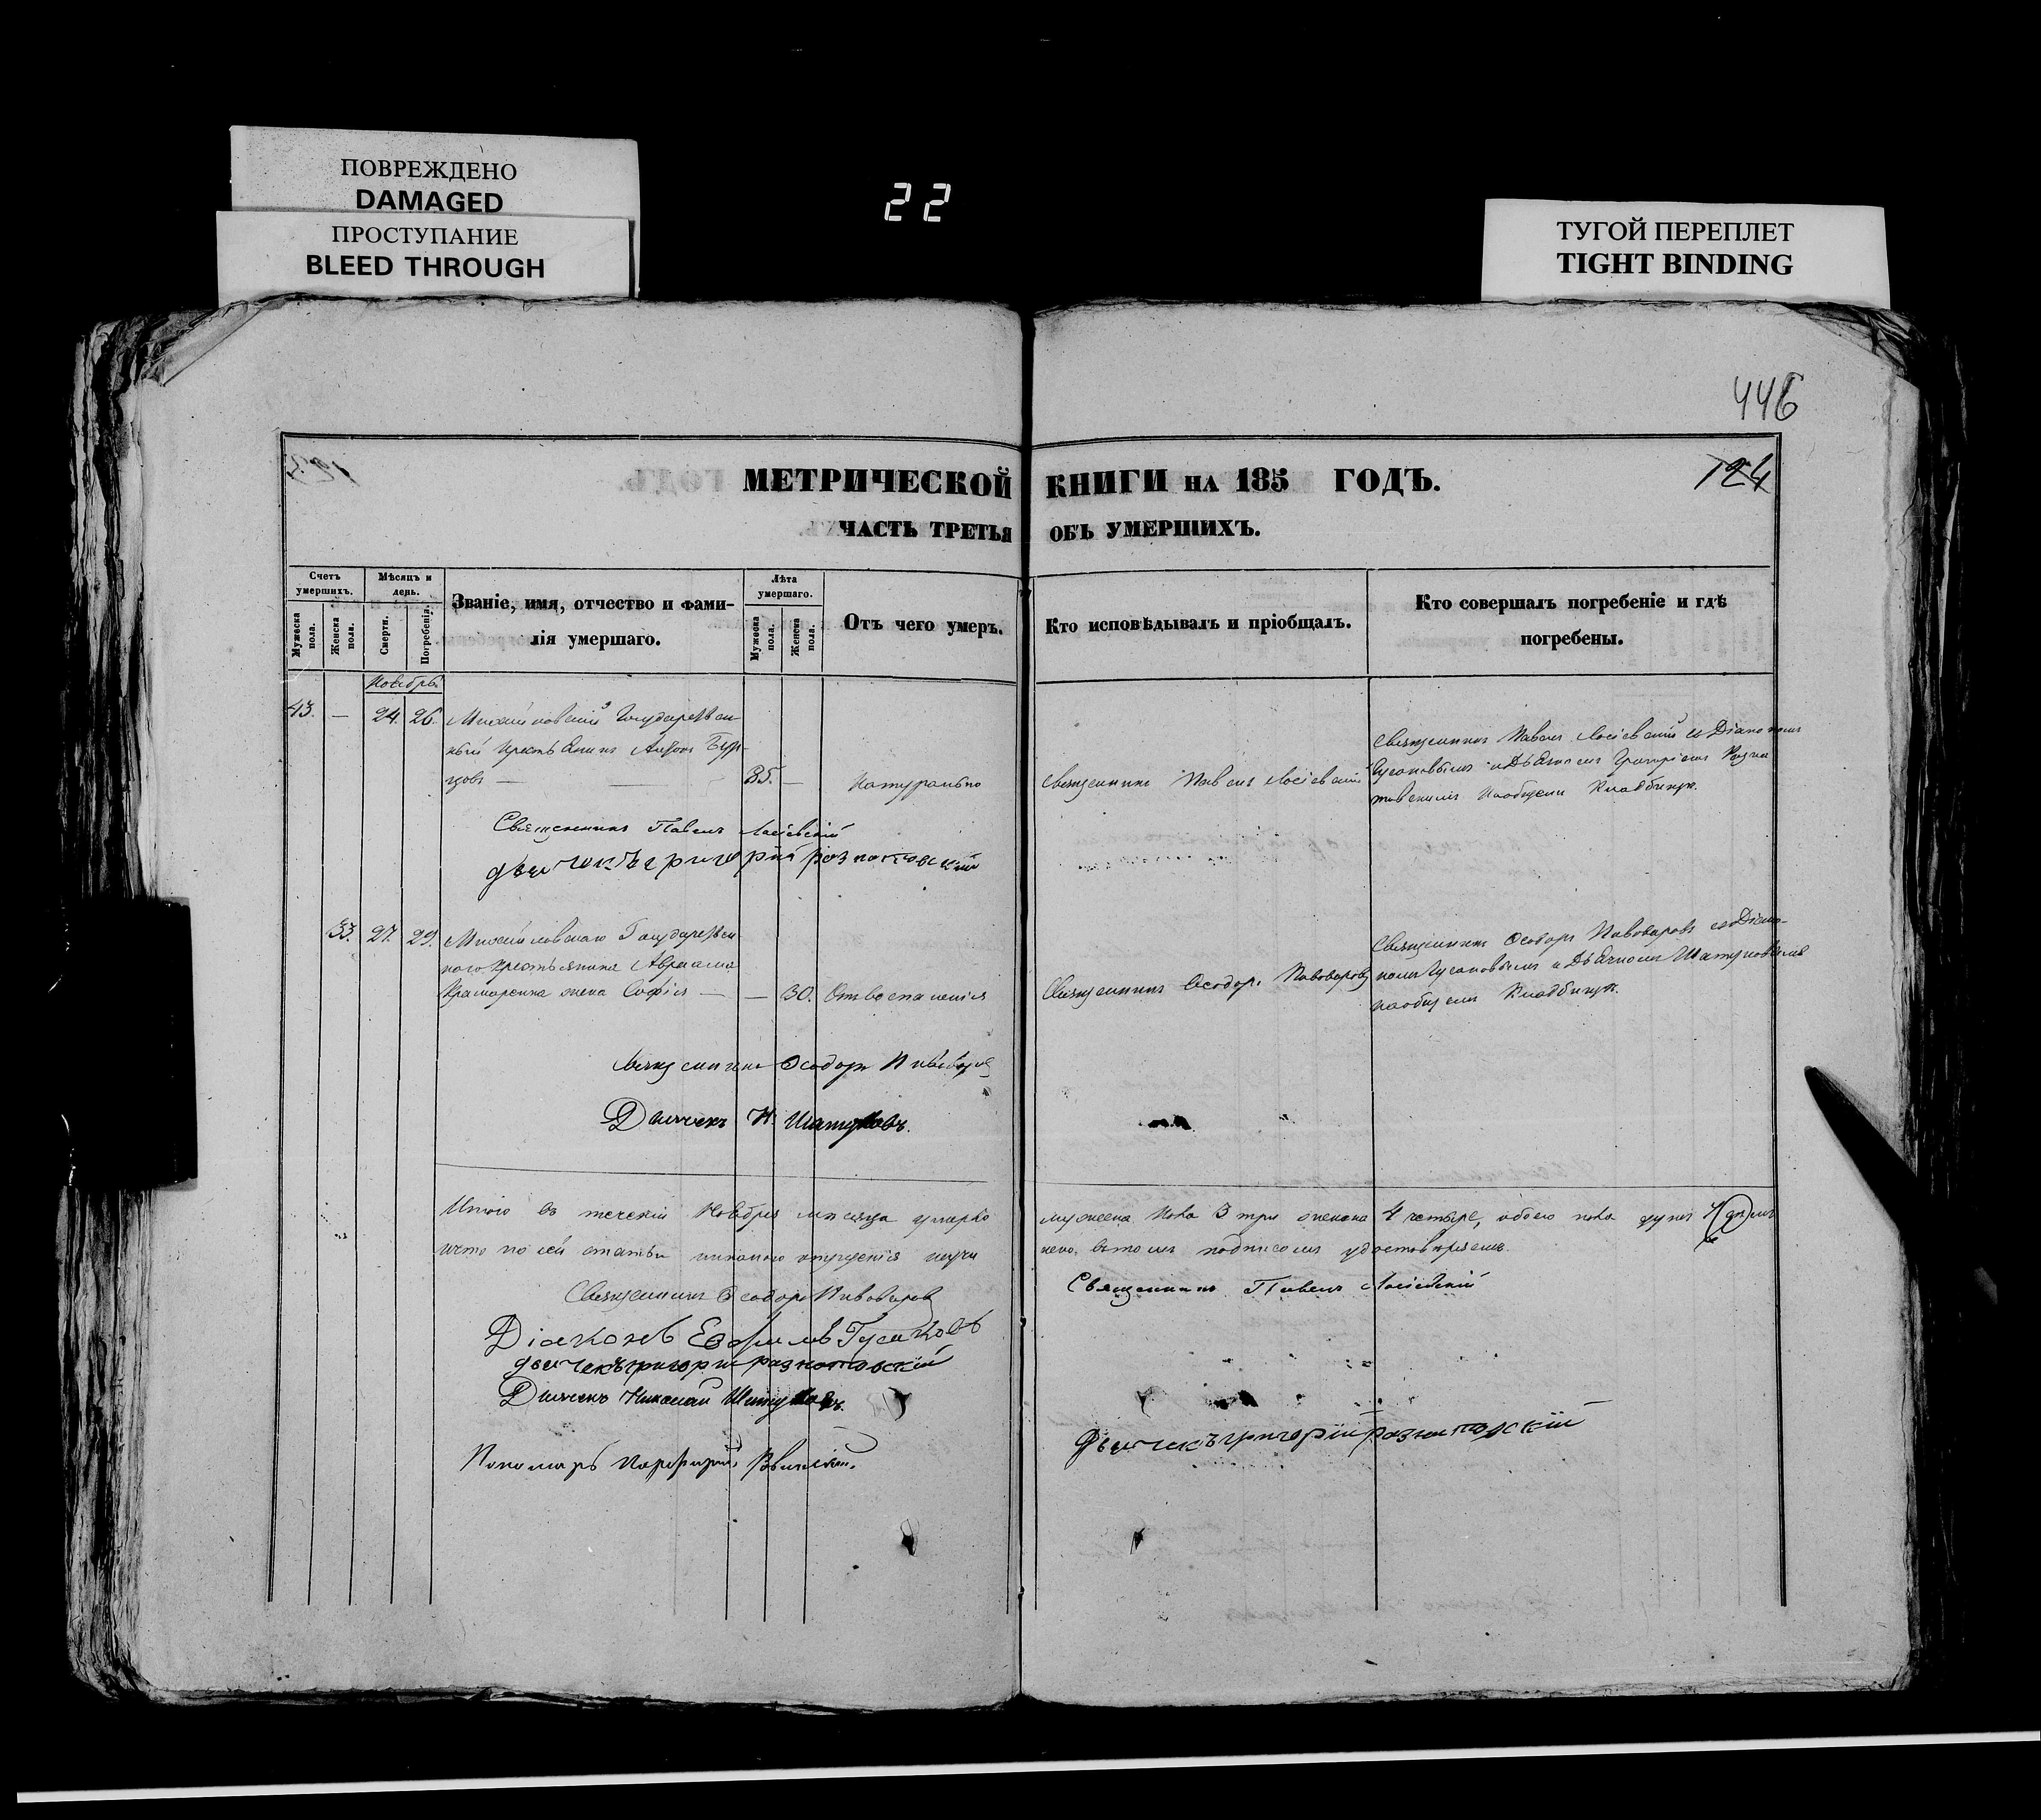 ПОВРЕЖДЕНО
DAMAGED
ПРОСТУПАНИЕ
BLEED THROUGH
22
ТУГОЙ ПЕРЕПЛЕТ
TIGHT BINDING
446
124
МЕТРИЧЕСКОЙ КНИГИ НА 185 ГОДЪ.
ЧАСТЬ ТРЕТЬЯ ОБЪ УМЕРШИХЪ.
Счетъ умершихъ.
Мужеска пола.
Женска пола.
Мѣсяцъ и день.
Смерти.
Погребенія.
Званіе, имя, отчество и фами-
лія умершаго.
Лѣта умершаго.
Мужеска пола.
Женска пола.
Отъ чего умеръ.
Кто исповѣдывалъ и пріобщалъ.
Кто совершалъ погребеніе и гдѣ
погребены.
Ноябрь
43. — 24. 26. Михайловскій Государствен-
ный крестьянинъ Антонъ
35. — Натурально
Священникъ Павелъ Лосіевскій
Священникъ Павелъ Лосіевскій съ Діакономъ
Гусаковымъ и Дьячкомъ Григоріемъ
на общемъ Кладбищѣ.
Священникъ Павелъ Лосіевскій
дьячекъ григорій разнатовскій
33. 27. 29. Михайловскаго Государствен
наго крестьянина Авраама
Крамаренка жена Софія — — 30. Отъ воспаленія
Священникъ Ѳеодоръ Пивоваровъ
Священникъ Ѳеодоръ Пивоваровъ съ Діако-
номъ Гусаковымъ и Дьячкомъ Шатуновымъ
на общемъ Кладбищѣ.
Священникъ Ѳеодоръ Пивоваровъ
Дьячекъ Н. Шатуновъ.
Итого въ теченіи Ноября мѣсяца умерло мужеска пола 3 три женска 4 четыре, обоего пола душъ 7
что по сей статьи никакого упущенія неучи
нено, въ томъ подписомъ удостовѣряемъ.
Священникъ Ѳеодоръ Пивоваровъ
Священникъ Павелъ Лосіевскій
Діаконъ Евфимъ Гусаковъ
дьячекъ григорій разнатовскій
Дьячекъ Николай Шатуновъ.
Дьячекъ григорій разнатовскій
Пономарь Порфирій